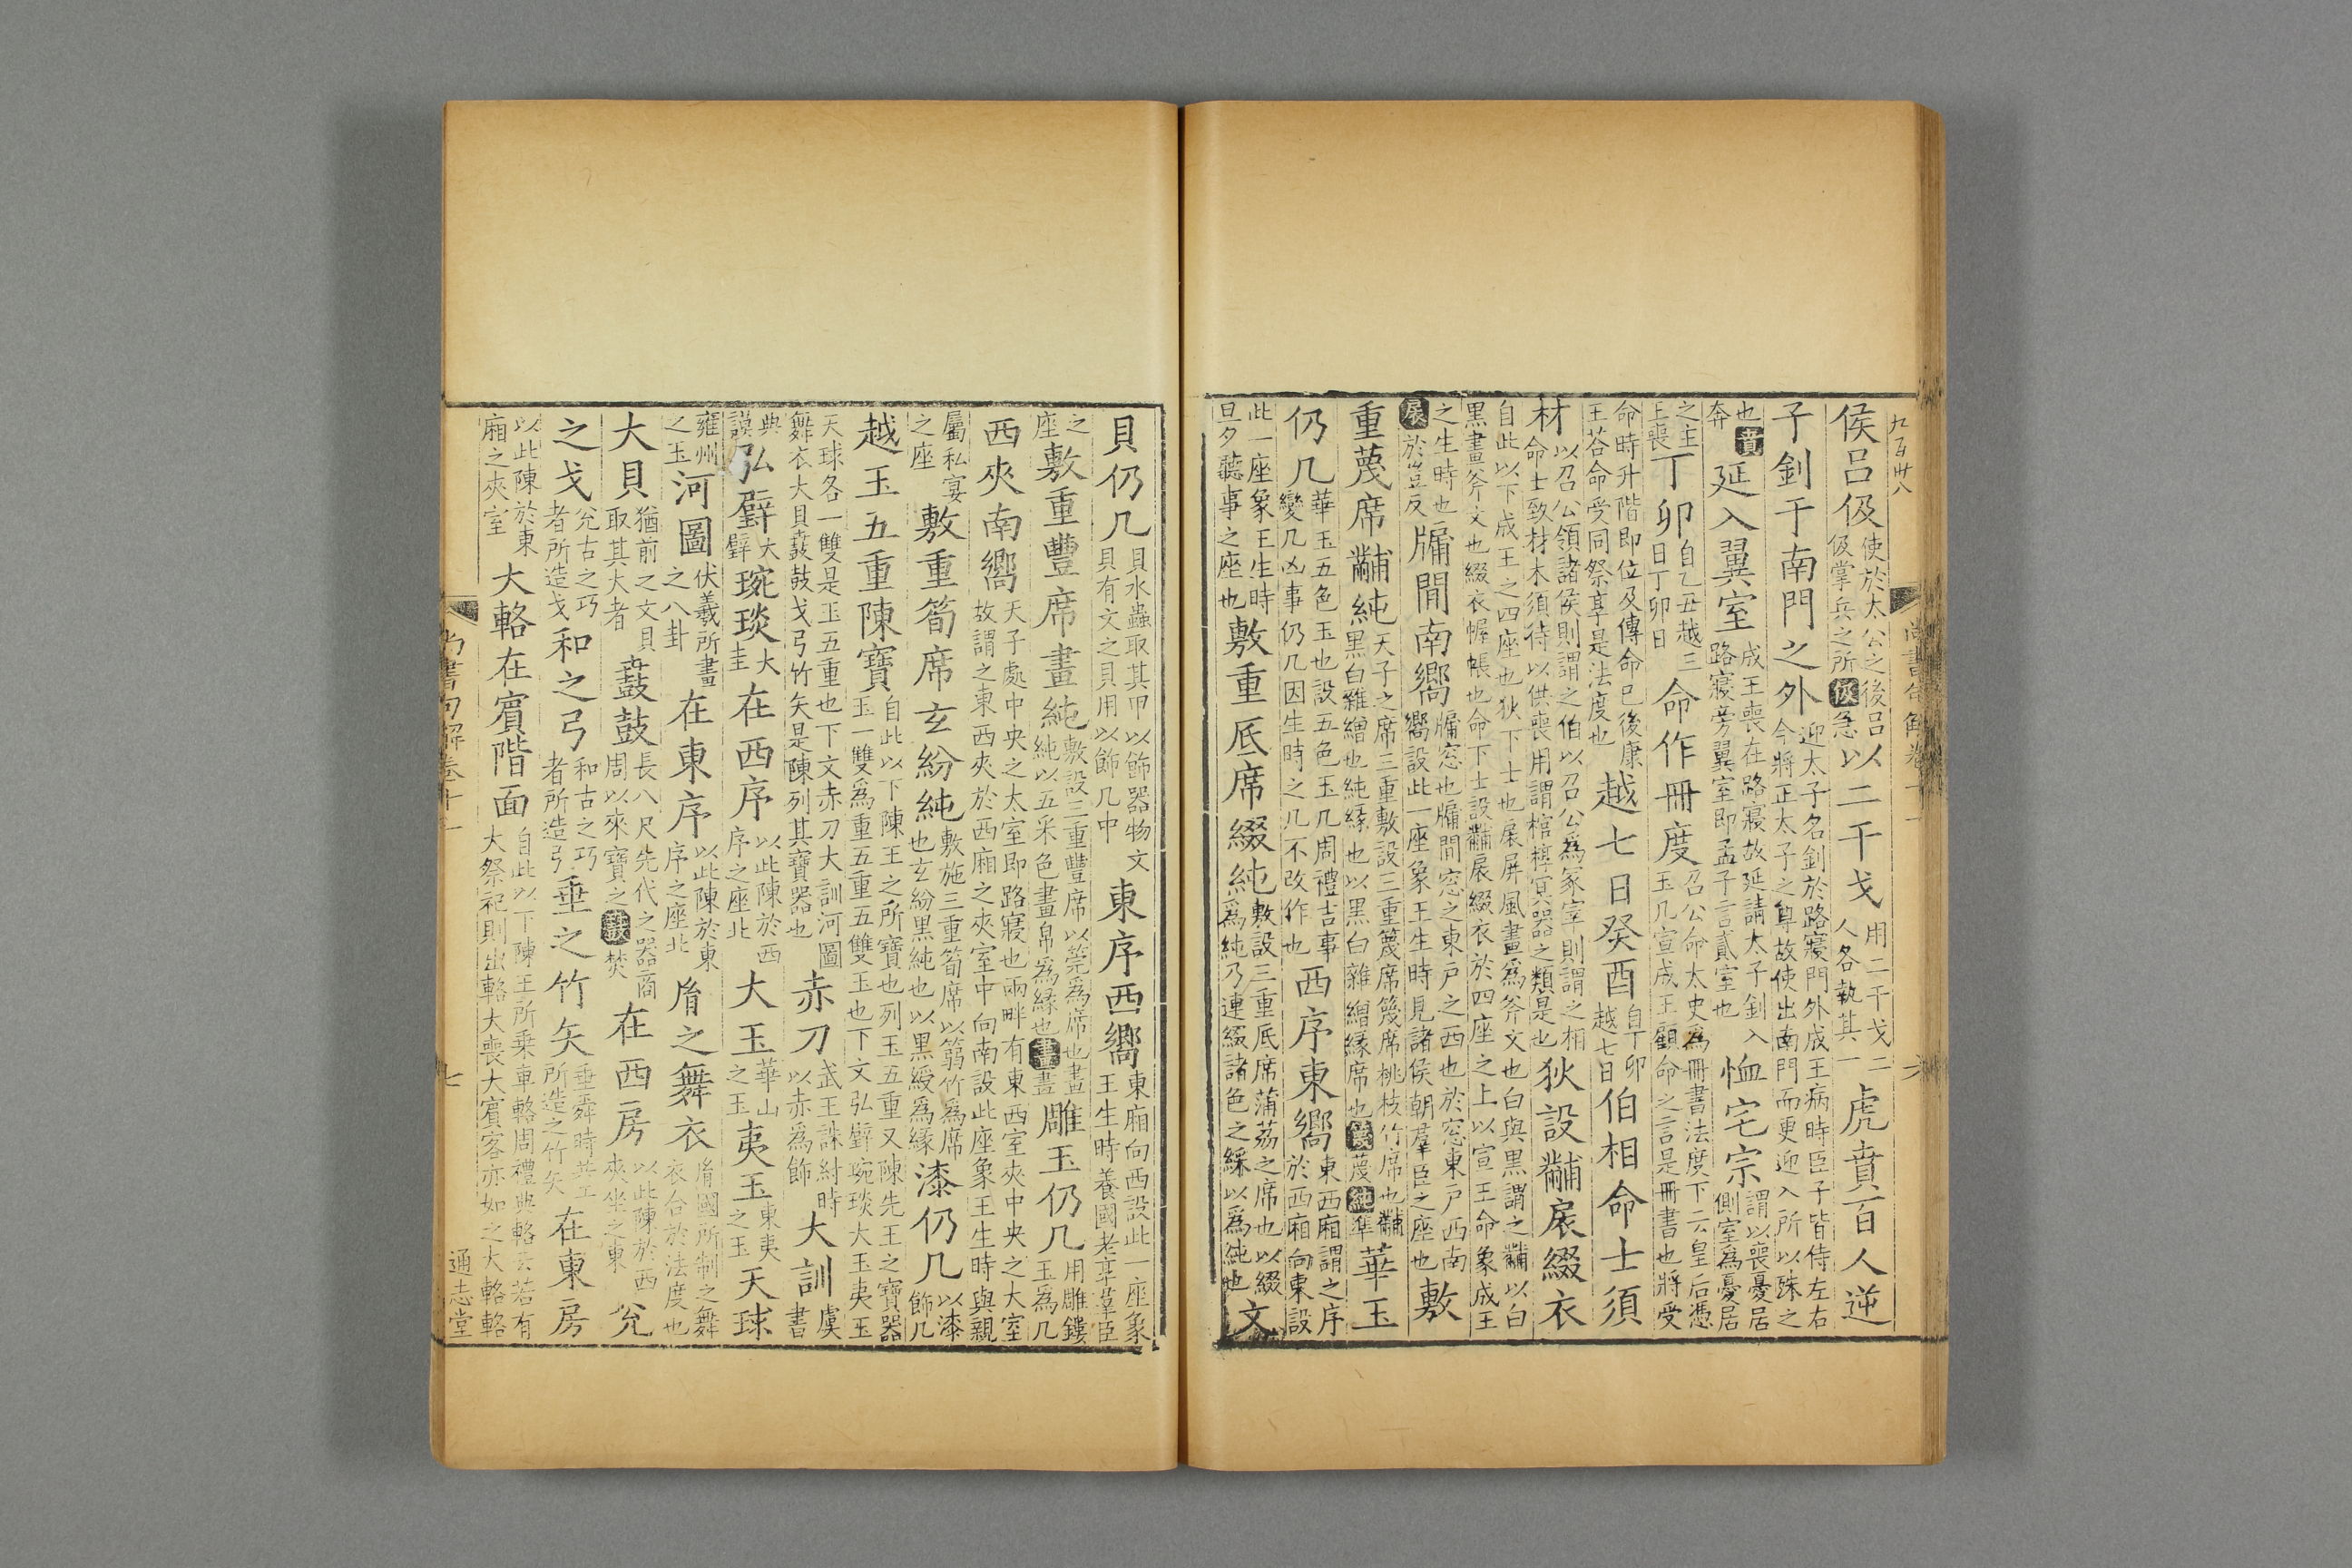 九百卅八
侯呂伋使於太公之後呂伋掌兵之所伋急以二干戈用二干戈二人各執其一虎賁百人逆
子釗于南門之外迎太子名釗於路寢門外成王病時臣子皆侍左右今將正太子之尊故使出南門而更迎入所以殊之
也賁奔延入翼室成王喪在路寢故延請太子釗入路寢旁翼室即孟子言貳室也恤宅宗謂以喪憂居側室為憂居
之主王喪丁卯自乙丑越三日丁卯日命作冊度召公命太史為冊書法度下云皇后憑玉几宣成王顧命之言是冊書也將受
命時升階即位及傳命已後康王荅命受同祭享是法度也越七日癸酉自丁卯越七日伯相命士須
材以召公領諸侯則謂之伯以召公為冢宰則謂之相命士致材木須待以供喪用謂棺椁冥器之類是也狄設黼扆綴衣
自此以下成王之四座也狄下士也扆屏風畫為斧文也白與黑謂之黼以白黑畫斧文也綴衣幄帳也命下士設黼扆綴衣於四座之上以宣王命象成王
之生時也扆於豈反牖間南嚮牖窓也牖間窓之東戸之西也於窓東戸西南嚮設此一座象王生時見諸侯朝羣臣之座也敷
重蔑席黼純天子之席三重敷設三重篾席篾席桃枝竹席也黼黑白雜繒也純緣也以黑白雜繒緣席也篾蔑純準華玉
仍几華玉五色玉也設五色玉几周禮吉事變几凶事仍几因生時之几不改作也西序東嚮東西廂謂之序於西廂向東設
此一座象王生時旦夕聽事之座也敷重厎席綴純敷設三重厎席蒲蒻之席也以綴為純乃連綴諸色之綵以為純也文
尚書句解卷十一
六
貝仍几貝水蟲取其甲以飾器物文貝有文之貝用以飾几中東序西嚮東廂向西設此一座象王生時養國老享羣臣
之座敷重豐席畫純敷設三重豐席以莞為席也畫純以五采色畫帛為緣也畫畫雕玉仍几用雕鏤玉為几
西夾南嚮天子處中央之太室即路寢也兩畔有東西室夾中央之大室故謂之東西夾於西廂之夾室中向南設此座象王生時與親
屬私宴之座敷重筍席玄紛純敷施三重筍席以篛竹為席也玄紛黑純也以黑綬為緣漆仍几以漆飾几
越玉五重陳寶自此以下陳王之所寶也列玉五重又陳先王之寶器玉一雙為重五重五雙玉也下文弘璧琬琰大玉夷玉
天球各一雙是玉五重也下文赤刀大訓河圖舞衣大貝鼖鼓戈弓竹矢是陳列其寶器也赤刀武王誅紂時以赤為飾大訓虞書
典謨弘璧大璧琬琰大圭在西序以此陳於西序之座北大玉華山之玉夷玉東夷之玉天球
雍州之玉河圖伏羲所畫之八卦在東序以此陳於東序之座北胤之舞衣胤國所制之舞衣合於法度也
大貝猶前之文貝取其大者鼖鼓長八尺先代之器商周以來寶之鼖焚在西房以此陳於西夾坐之東兊
之戈兊古之巧者所造戈和之弓和古之巧者所造弓垂之竹矢垂舜時共工所造之竹矢在東房
以此陳於東廂之夾室大輅在賔階面自此以下陳王所乗車輅周禮典輅云若有大祭祀則出輅大喪大賔客亦如之大輅輅
尚書句解卷十一
七
通志堂